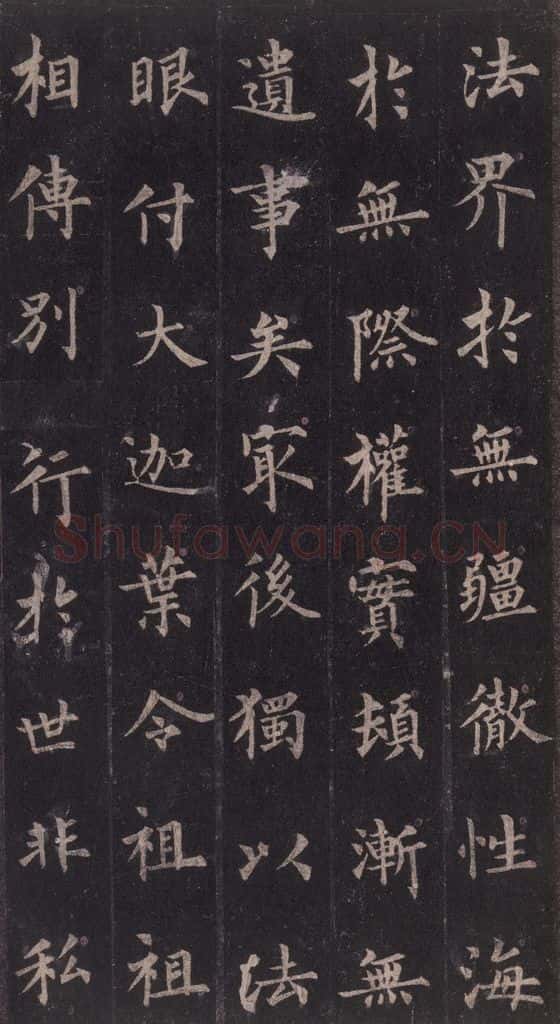 法界於無疆徹性海
於無際權實頓漸無
遺事矣冣後獨以法
眼付大迦葉令祖祖
相傳別行於世非私
Shufawang.CN